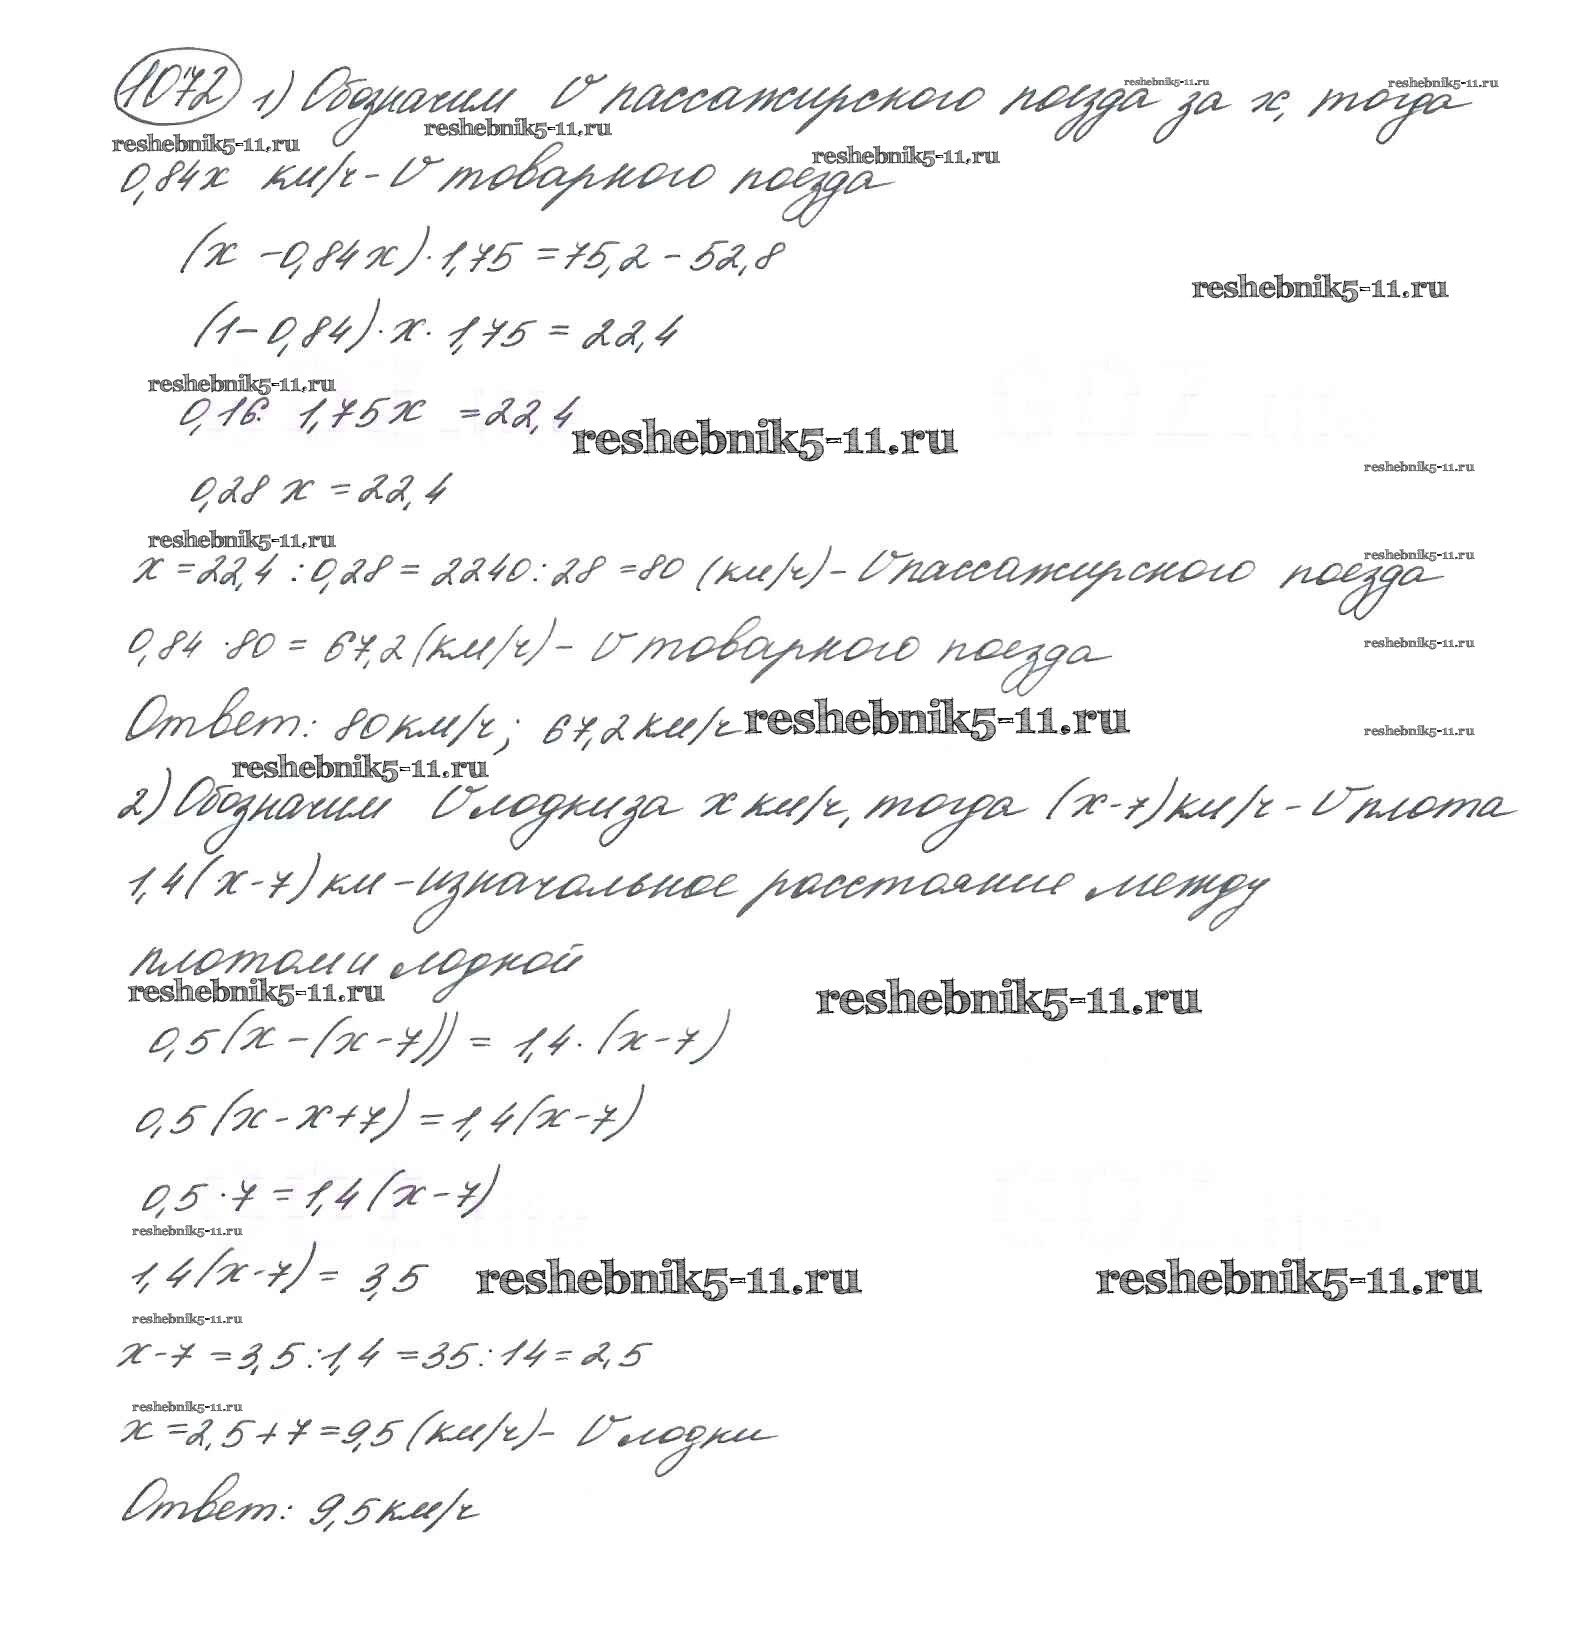 1072 1) Обозначим V пассажирского поезда за x, тогда
reshebnik5-11.ru
reshebnik5-11.ru
reshebnik5-11.ru
reshebnik5-11.ru
reshebnik5-11.ru
0,84x км/ч - V товарного поезда
(x - 0,84x) · 1,75 = 75,2 - 52,8
reshebnik5-11.ru
(1 - 0,84) · x · 1,75 = 22,4
reshebnik5-11.ru
0,16 · 1,75x = 22,4
reshebnik5-11.ru
reshebnik5-11.ru
0,28 x = 22,4
reshebnik5-11.ru
reshebnik5-11.ru
x = 22,4 : 0,28 = 2240 : 28 = 80 (км/ч) - V пассажирского поезда
0,84 · 80 = 67,2 (км/ч) - V товарного поезда
reshebnik5-11.ru
Ответ: 80 км/ч; 67,2 км/ч
reshebnik5-11.ru
reshebnik5-11.ru
reshebnik5-11.ru
2) Обозначим V лодки за x км/ч, тогда (x - 7) км/ч - V плота
1,4(x - 7) км - изначальное расстояние между
плотом и лодкой
reshebnik5-11.ru
reshebnik5-11.ru
0,5(x - (x - 7)) = 1,4 · (x - 7)
0,5(x - x + 7) = 1,4(x - 7)
0,5 · 7 = 1,4(x - 7)
reshebnik5-11.ru
1,4(x - 7) = 3,5
reshebnik5-11.ru
reshebnik5-11.ru
reshebnik5-11.ru
x - 7 = 3,5 : 1,4 = 35 : 14 = 2,5
reshebnik5-11.ru
x = 2,5 + 7 = 9,5 (км/ч) - V лодки
Ответ: 9,5 км/ч